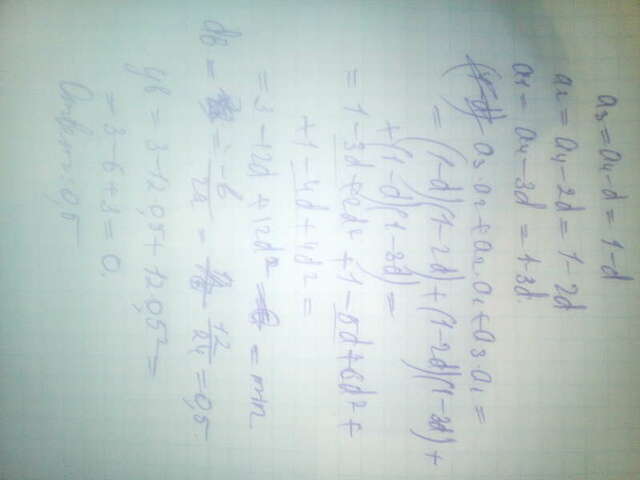 a₃ = a₄ - d = 1 - d
a₂ = a₄ - 2d = 1 - 2d
a₁ = a₄ - 3d = 1 - 3d
a₃·a₂ + a₂·a₁ + a₃·a₁ =
= (1-d)(1-2d) + (1-2d)(1-3d) +
+ (1-d)(1-3d) =
= 1 - 3d + 2d² + 1 - 5d + 6d² +
+ 1 - 4d + 4d² =
= 3 - 12d + 12d² = min
dв = -b/2a = 12/24 = 0,5
yв = 3 - 12·0,5 + 12·0,5² =
= 3 - 6 + 3 = 0.
Ответ: 0,5